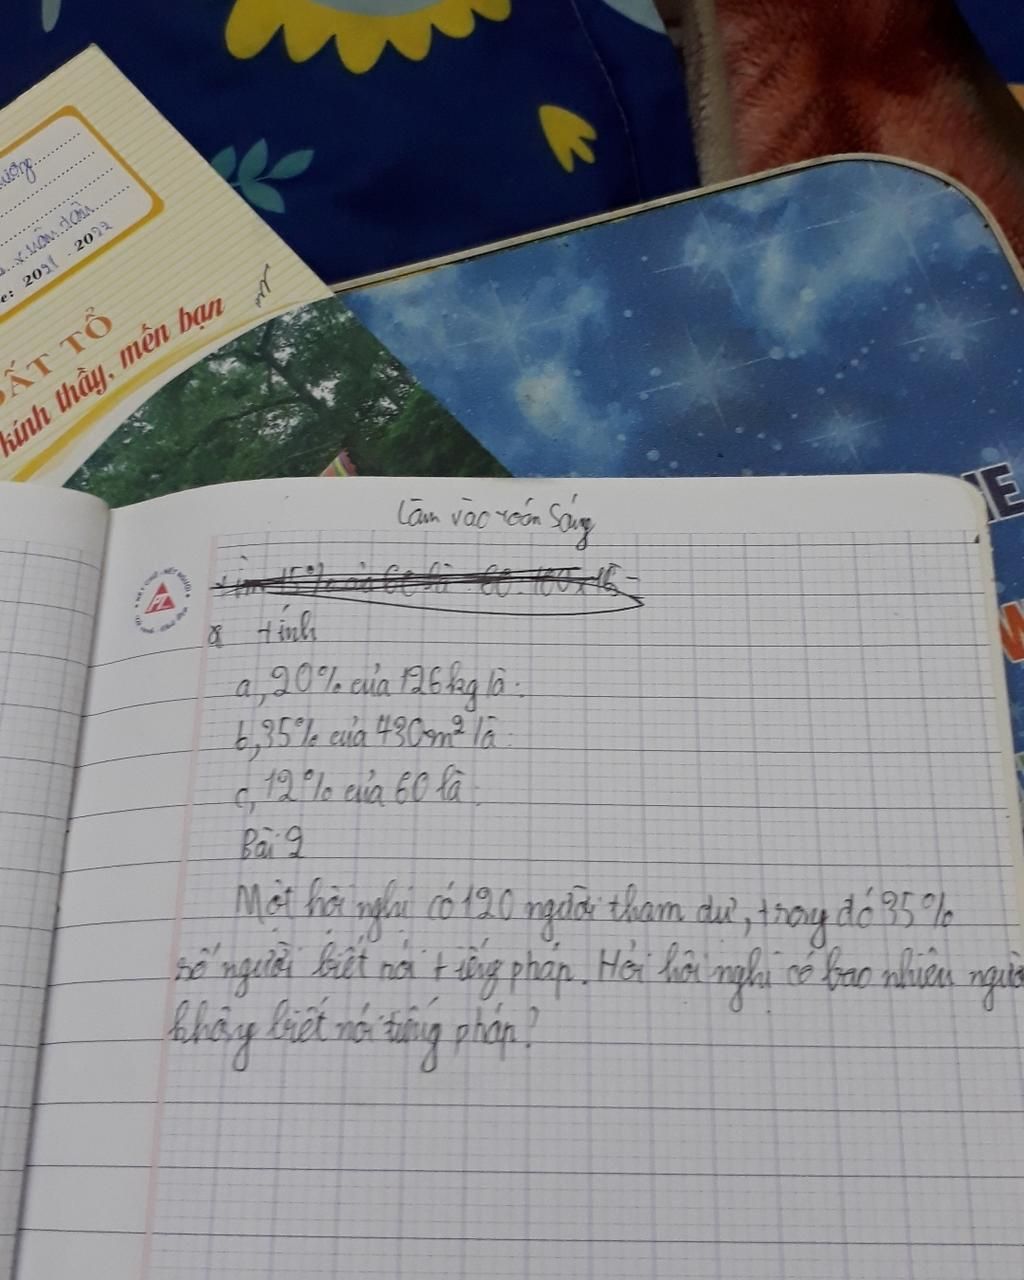 ương
xuân dân
2021 - 2022
ĐẤT TỔ
kính thầy, mến bạn
Làm vào toán Sáng
tính
a, 20% của 126kg là:
b, 35% của 430m² là:
c, 12% của 60 là:
Bài 2
Một hội nghị có 120 người tham dự, trong đó 35%
số người biết nói tiếng pháp. Hỏi hội nghị có bao nhiêu người
không biết nói tiếng pháp?